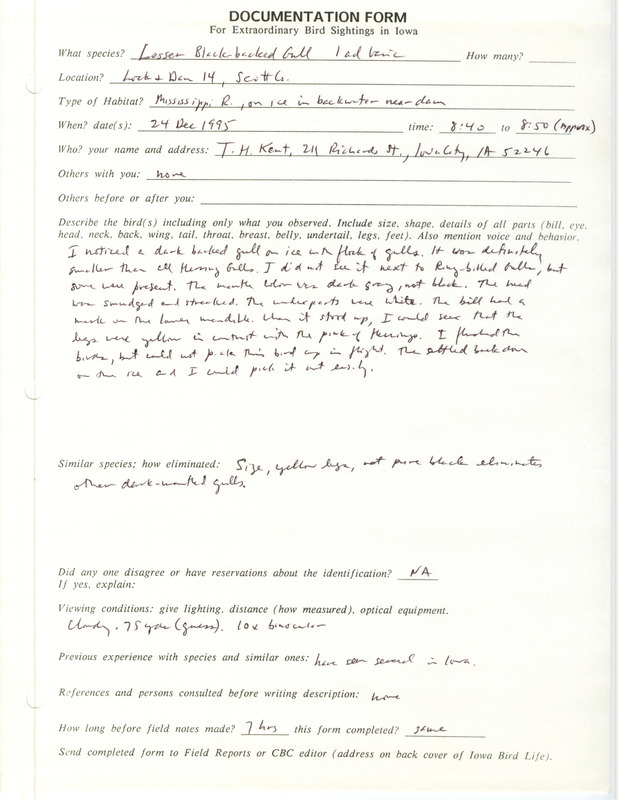 DOCUMENTATION FORM
For Extraordinary Bird Sightings in Iowa
What species? Lesser Black-backed Gull 1 ad basic How many?
Location? Lock & Dam 14, Scott Co.
Type of Habitat? Mississippi R., on ice in backwater near dam
When? date(s): 24 Dec 1995 time: 8:40 to 8:50 (approx)
Who? your name and address: T. H. Kent, 211 Richards St., Iowa City, IA 52246
Others with you: none
Others before or after you:
Describe the bird(s) including only what you observed. Include size, shape, details of all parts (bill, eye,
head, neck, back, wing, tail, throat, breast, belly, undertail, legs, feet). Also mention voice and behavior.
I noticed a dark backed gull on ice with flock of gulls. It was definitely
smaller than all Herring Gulls. I did not see it next to Ring-billed Gulls, but
some were present. The mantle color was dark gray, not black. The head
was smudged and streaked. The underparts were white. The bill had a
mark on the lower mandible. When it stood up, I could see that the
legs were yellow in contrast with the pink of Herrings. I flushed the
birds, but could not pick this bird up in flight. The settled back down
on the ice and I could pick it out easily.
Similar species; how eliminated: Size, yellow legs, not pure black eliminates
other dark-mantled gulls.
Did any one disagree or have reservations about the identification? NA
If yes, explain:
Viewing conditions: give lighting, distance (how measured), optical equipment.
Cloudy. 75 yds (guess). 10x binocular
Previous experience with species and similar ones: have seen several in Iowa.
References and persons consulted before writing description: none
How long before field notes made? 7 hrs this form completed? same
Send completed form to Field Reports or CBC editor (address on back cover of Iowa Bird Life).